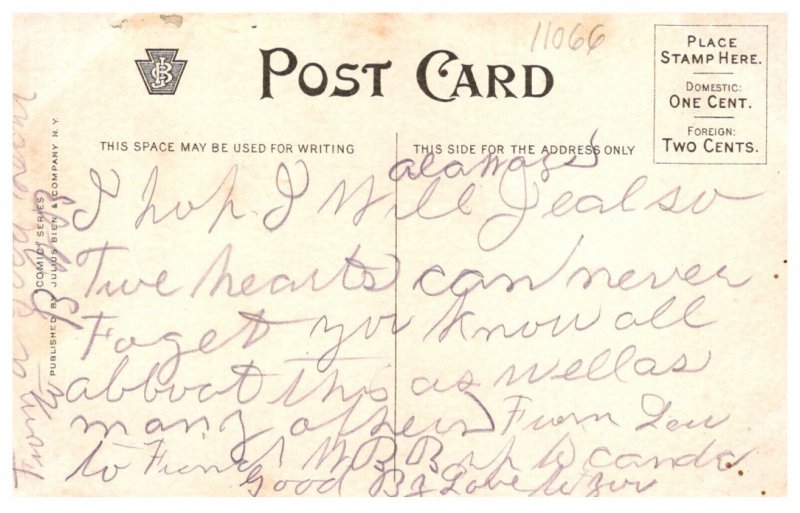 11066
POST CARD
PLACE
STAMP HERE.
DOMESTIC:
ONE CENT.
FOREIGN:
TWO CENTS.
THIS SPACE MAY BE USED FOR WRITING
THIS SIDE FOR THE ADDRESS ONLY
"COMIC" SERIES
PUBLISHED BY JULIUS BIEN & COMPANY N.Y.
I hop I Will
Twe hearts can never
Foget you know all
abboat this as well as
many others From
to
Good By Love
From a
to